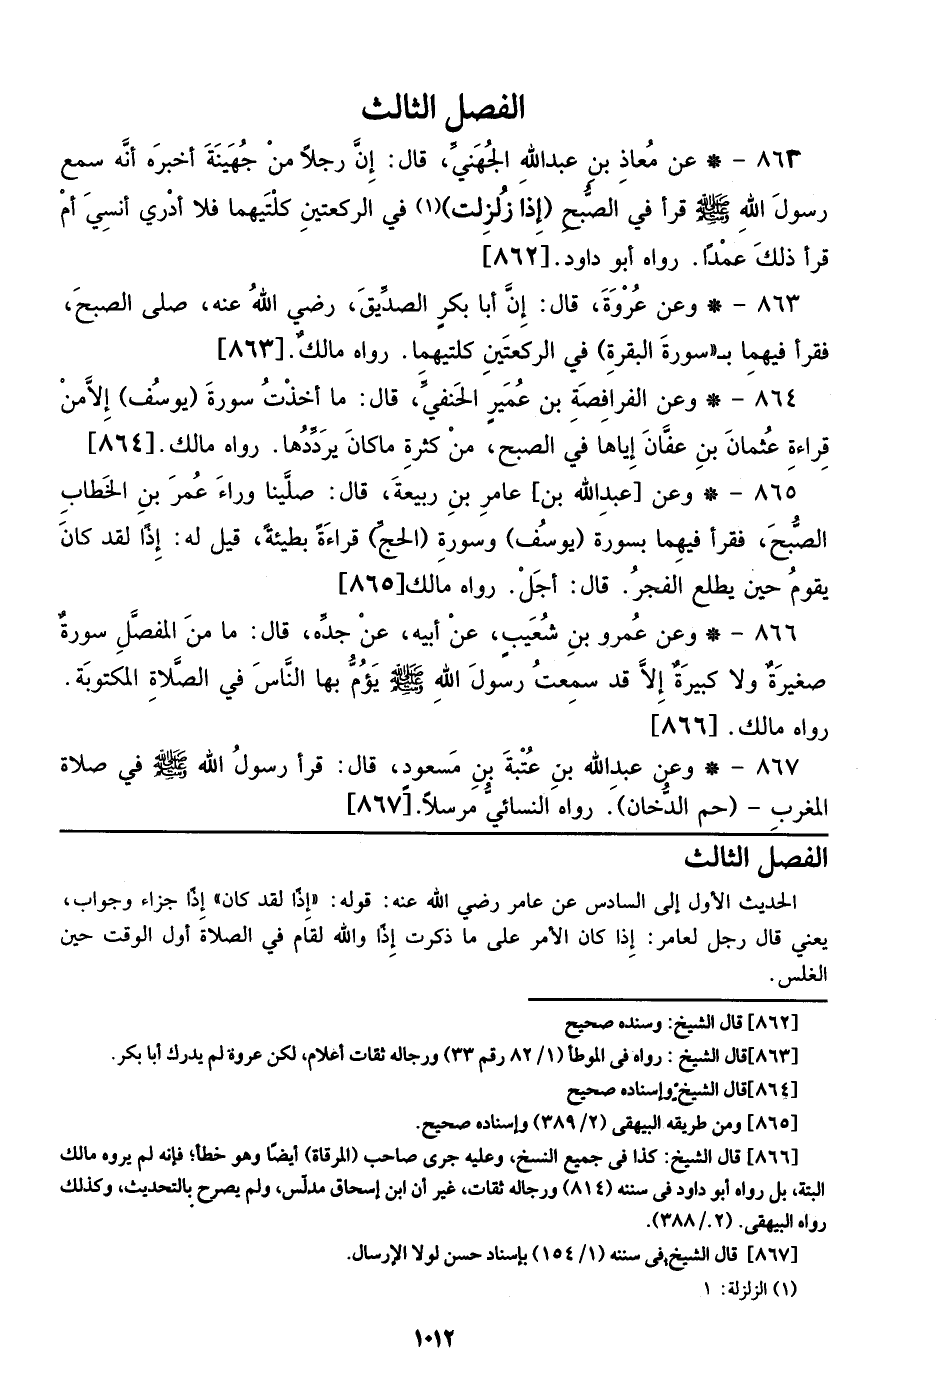 الفصل الثالث
٨٦٣ – * عن مُعاذِ بنِ عبدالله الجُهَنيِّ، قال: إنَّ رجلاً منْ جُهَينَةَ أخبرَه أنَّه سمع
رسولَ اللهِ ﷺ قرأ في الصبُّحِ (إذا زُلْزِلت)(١) في الركعتينِ كلْتَيهما فلا أدْري أنسيَ أمْ
قرأ ذلكَ عمْدًا. رواه أبو داود.[٨٦٢]
٨٦٣ – * وعن عُرْوَةَ، قال: إنَّ أبا بكرٍ الصديِّقَ، رضي اللهُ عنه، صلى الصبحَ،
فقرأ فيهمِا بـ«سورةَ البقرةِ) في الركعتَينِ كلتيهما. رواه مالكٌ.[٨٦٣]
٨٦٤ – * وعن الفرافِصَةِ بن عُمَيرٍ الحَنفيِّ، قال: ما أخذْتُ سورةَ (يوسُف) إلاَّمنْ
قِراءةِ عُثمانَ بنِ عفَّانَ إياها في الصبحِ، منْ كثرةِ ماكانَ يرَدِّدُها. رواه مالك.[٨٦٤]
٨٦٥ – * وعن [عبدِالله بن] عامرِ بنِ ربيعةَ، قال: صلَّينا وراءَ عُمرَ بنِ الخَطابِ
الصبُّحَ، فقرأ فيهِما بسورة (يوسُف) وسورةِ (الحجِّ) قراءَةً بطيئةً، قيل له: إذًا لقد كانَ
يقومُ حين يطلع الفجرُ. قال: أجَلْ. رواه مالك[٨٦٥]
٨٦٦ – * وعن عُمرو بنِ شُعَيبٍ، عنْ أبيه، عنْ جدِّه، قال: ما منَ المفصَّلِ سورةٌ
صغيرَةٌ ولا كبيرَةٌ إلاَّ قد سمِعتُ رسولَ اللهِ ﷺ يَؤُمُّ بها النَّاسَ في الصَّلاةِ المكتوبَة.
رواه مالك. [٨٦٦]
٨٦٧ – * وعن عبدِالله بنِ عتُبْةَ بنِ مَسعودٍ، قال: قرأ رسولُ الله ﷺ في صلاة
المغربِ – (حم الدُّخان). رواه النسائيُّ مرسلاً.[٨٦٧]
الفصل الثالث
الحديث الأول إلى السادس عن عامر رضي الله عنه: قوله: «إذًا لقد كان» إذًا جزاء وجواب،
يعني قال رجل لعامر: إذا كان الأمر على ما ذكرت إذًا والله لقام في الصلاة أول الوقت حين
الغلس.
[٨٦٢] قال الشيخ: وسنده صحيح
[٨٦٣]قال الشيخ : رواه فى الموطأ (١/ ٨٢ رقم ٣٣) ورجاله ثقات أعلام، لكن عروة لم يدرك أبا بكر.
[٨٦٤]قال الشيخ وإسناده صحيح
[٨٦٥] ومن طريقه البيهقى (٢/ ٣٨٩) وإسناده صحيح.
[٨٦٦] قال الشيخ: كذا فى جميع النسخ، وعليه جرى صاحب (المرقاة) أيضًا وهو خطأ؛ فإنه لم يروه مالك
البتة، بل رواه أبو داود فى سننه (٨١٤) ورجاله ثقات، غير أن ابن إسحاق مدلّس، ولم يصرح بالتحديث، وكذلك
رواه البيهقى. (٢./ ٣٨٨).
[٨٦٧] قال الشيخ فى سننه (١/ ١٥٤) بإسناد حسن لولا الإرسال.
(١) الزلزلة: ١
١٠١٢